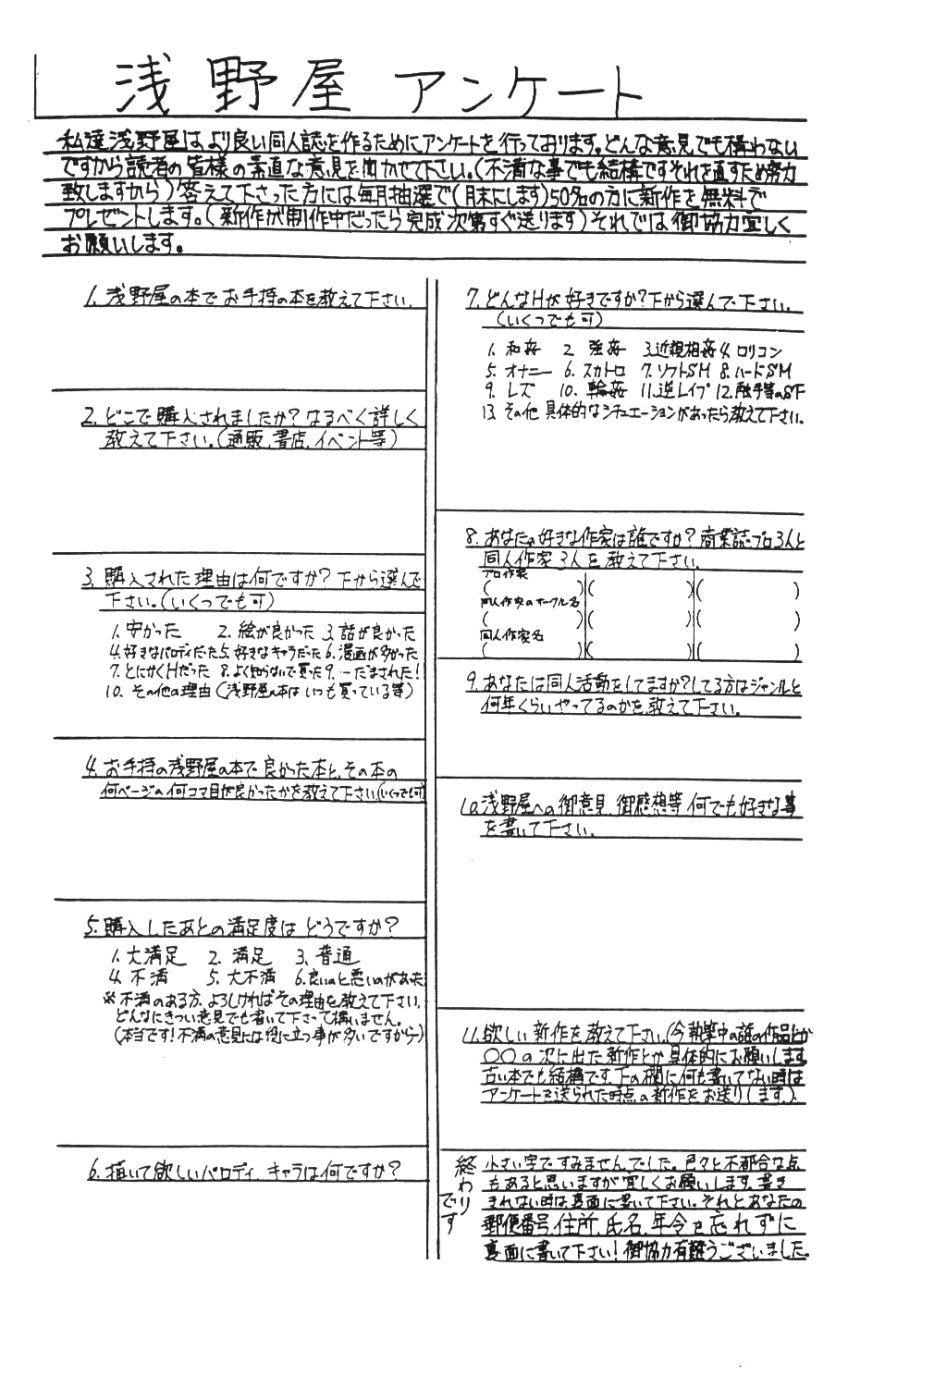 浅野屋 アンケート
私達浅野屋はより良い同人誌を作るためにアンケートを行っております。どんな意見でも構わない
ですから読者の皆様の素直な意見を聞かせて下さい。(不満な事でも結構ですそれを直すため努力
致しますから)答えて下さった方には毎月抽選で(月末にします)50名の方に新作を無料で
プレゼントします。(新作が制作中だったら完成次第すぐ送ります)それでは御協力宜しく
お願いします。
1.浅野屋の本でお手持の本を教えて下さい。
2.どこで購入されましたか?なるべく詳しく
教えて下さい。(通販、書店、イベント等)
3.購入された理由は何ですか?下から選んで
下さい。(いくつでも可)
1.安かった 2.絵が良かった 3.話が良かった
4.好きなパロディだった 5.好きなキャラだった 6.漫画が多かった
7.とにかくHだった 8.よく知らないで買った 9.一だまされた!
10.その他の理由(浅野屋の本はいつも買っている等)
4.お手持の浅野屋の本で良かった本と、その本の
何ページの何コマ目が良かったかを教えて下さい(いくつでも可)
5.購入したあとの満足度はどうですか?
1.大満足 2.満足 3.普通
4.不満 5.大不満 6.良いのと悪いのがあった
※不満のある方、よろしければその理由を教えて下さい。
どんなにきつい意見でも書いて下さって構いません。
(本当です!不満の意見には役に立つ事が多いですから)
6.描いて欲しいパロディ、キャラは何ですか?
7.どんなHが好きですか?下から選んで下さい。
(いくつでも可)
1.和姦 2.強姦 3.近親相姦 4.ロリコン
5.オナニー 6.スカトロ 7.ソフトSM 8.ハードSM
9.レズ 10.輪姦 11.逆レイプ 12.触手等のSF
13.その他 具体的なシチュエーションがあったら教えて下さい。
8.あなたの好きな作家は誰ですか?商業誌プロ3人と
同人作家3人を教えて下さい。
プロ作家
( )( )( )
同人作家のサークル名
( )( )( )
同人作家名
( )( )( )
9.あなたは同人活動をしてますか?してる方はジャンルと
何年くらいやってるのかを教えて下さい。
10.浅野屋への御意見、御感想等、何でも好きな事
を書いて下さい。
11.欲しい新作を教えて下さい。(今執筆中の話の作品とか
〇〇の次に出た新作とか具体的にお願いします
古い本でも結構です。下の欄に何も書いてない時は
アンケートを送られた時点の新作をお送りします。)
終わりです
小さい字ですみませんでした。色々と不都合な点
もあると思いますが宜しくお願いします。書き
きれない時は裏面に書いて下さい。それとあなたの
郵便番号、住所、氏名、年令を忘れずに
裏面に書いて下さい!御協力有難うございました。